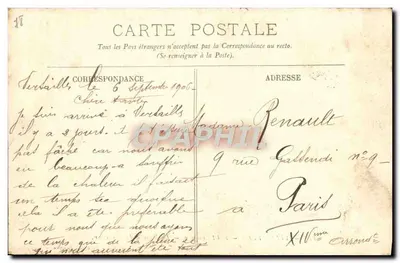 18
CARTE POSTALE
Tous les Pays étrangers n'acceptent pas la Correspondance au recto.
(Se renseigner à la Poste).
CORRESPONDANCE
ADRESSE
Versailles le 6 Septembre 1906
Chère
je suis arrivé à Versailles
il y a 2 jours. il
pas fâché car nous avons
eu beaucoup souffri
de la chaleur il faisait
un temps
cela il a été préférable
pour nous que nous ayons
ce temps que de la
Madame Renault
9 rue Gassendi n° 9
à Paris
XIV
arrondt